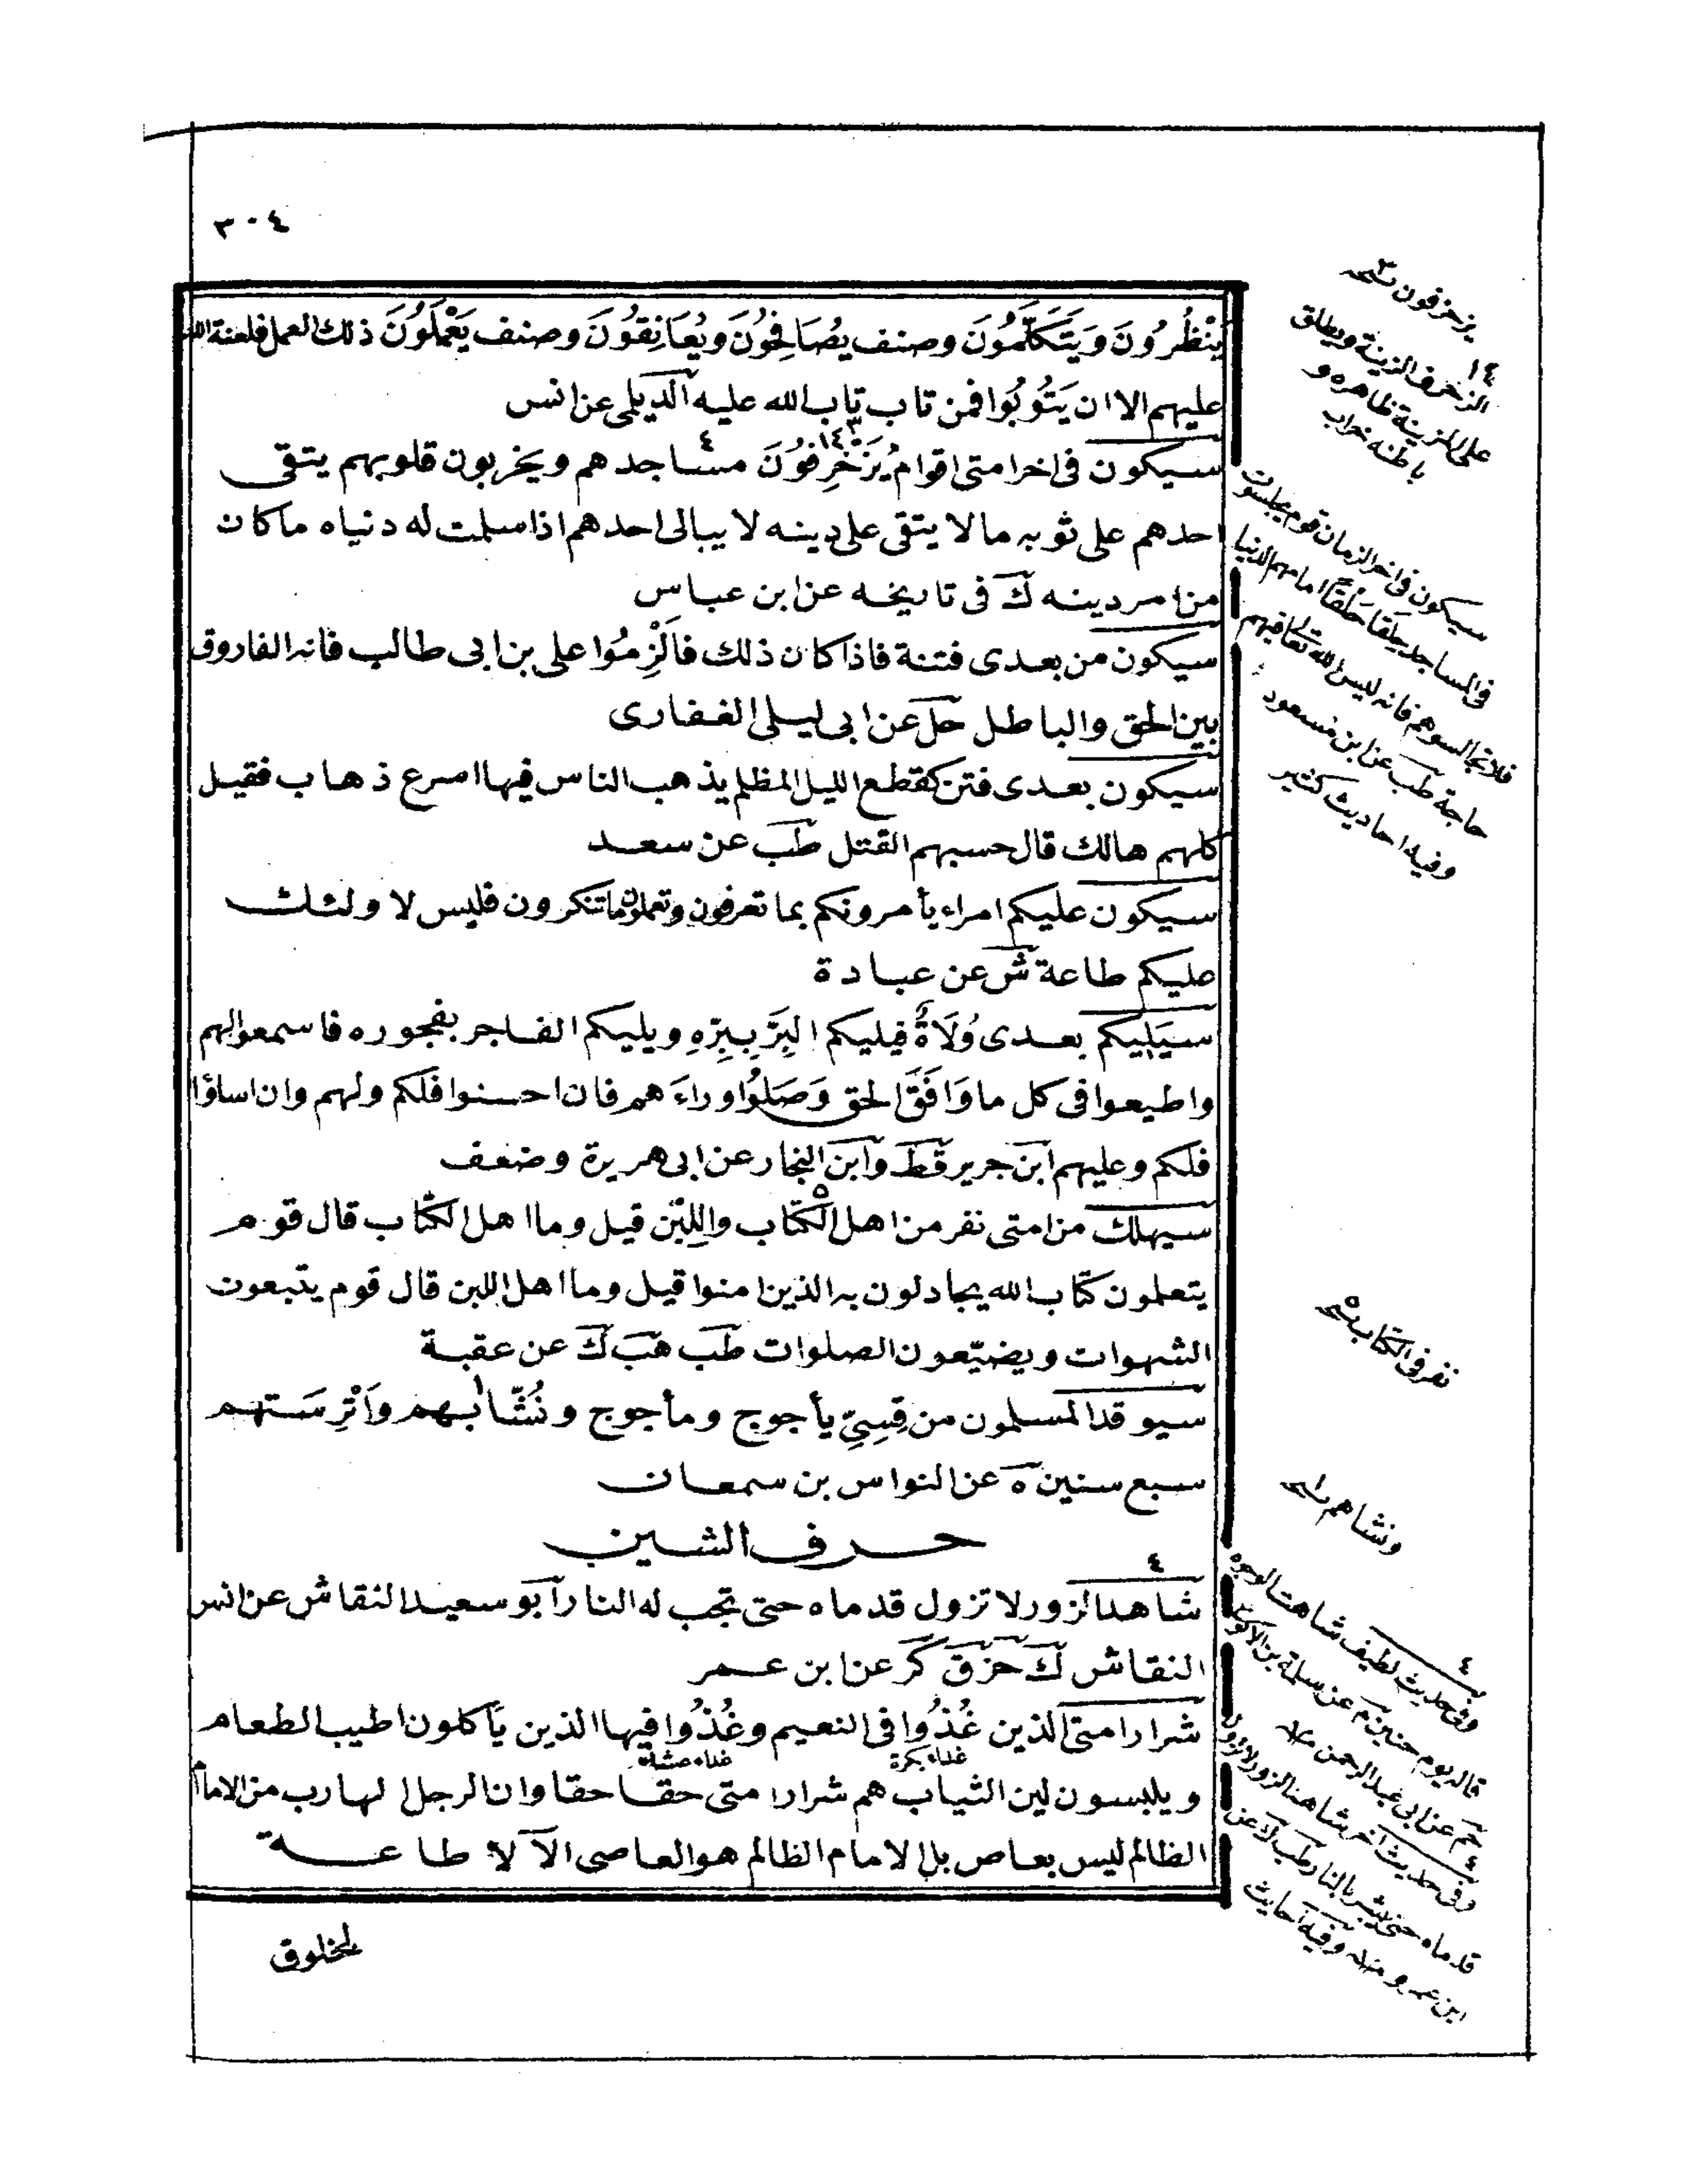 ٣٠٤
يَنْظُرُونَ وَيَتَكَلَّمُونَ وصنف يُصَافِحُونَ ويُعَانِقُونَ وصنف يَعْمَلُونَ ذلك العمل فلعنة الله
عليهم الا ان يَتُوبُوا فمن تاب تاب الله عليه الديلمى عن انس
سيكون فى اخر امتى اقوام يُزَخْرِفُونَ مساجدهم ويخربون قلوبهم يتقى
احدهم على ثوبه مالا يتقى على دينه لا يبالى احدهم اذا سلمت له دنياه ما كان
من امر دينه ك فى تاريخه عن ابن عباس
سيكون من بعدى فتنة فاذا كان ذلك فَالْزِمُوا على بن ابى طالب فانه الفاروق
بين الحق والباطل حل عن ابى ليلى الغفارى
سيكون بعدى فتن كقطع الليل المظلم يذهب الناس فيها اسرع ذهاب فقيل
كلهم هالك قال حسبهم القتل طب عن سعد
سيكون عليكم امراء يأمرونكم بما تعرفون وتعملون ما تنكرون فليس لاولئك
عليكم طاعة ش عن عبادة
سَيَلِيكم بعدى وُلَاةٌ فيليكم البَرّ بِبِرّهِ ويليكم الفاجر بفجوره فاسمعوا لهم
واطيعوا فى كل ما وَافَقَ الحق وَصَلُوا وراءَهم فان احسنوا فلكم ولهم وان اساؤا
فلكم وعليهم ابن جرير قط وابن النجار عن ابى هريرة وضعف
سيهلك من امتى نفر من اهل الكتاب واللبن قيل وما اهل الكتاب قال قوم
يتعلمون كتاب الله يجادلون به الذين امنوا قيل وما اهل اللبن قال قوم يتبعون
الشهوات ويضيّعون الصلوات طب هب ك عن عقبة
سيوقد المسلمون من قِسِىّ يأجوج ومأجوج ونُشّابهم واَتْرِسَتهم
سبع سنين ه عن النواس بن سمعان
حرف الشين
شاهد الزور لا تزول قدماه حتى تجب له النار ابو سعيد النقاش عن انس
النقاش ك خز ق كر عن ابن عمر
شرار امتى الذين غُذُوا فى النعيم وغُذُوا فيها الذين يأكلون اطيب الطعام
غداء بكرة غداء عشاء
ويلبسون لين الثياب هم شرار امتى حقا حقا وان الرجل الهارب من الامام
الظالم ليس بعاص بل الامام الظالم هو العاصى الا لا طاعة
لمخلوق
يزخرفون
١٤
الزخرف الزينة ويطلق
على المزينة ظاهره و
باطنه خراب
سيكون فى اخر الزمان قوم يجلسون
فى المساجد حِلَقا حَلَقًا امامهم الدنيا
فلا تجالسوهم فانه ليس لله تعالى فيهم
حاجة طب عن ابن مسعود
وفيه احاديث كثير
نفر فى الكتاب
ونشابهم
٤
وفى حديث لطيف شاهت الوجوه
قاله يوم حنين م عن سلمة بن الاكوع
حم عن ابى عبد الرحمن
وفى حديث آخر شاهد الزور لا تزول
قدماه حتى يبشر بالنار طب ك عن
ابن عمر وفيه احاديث